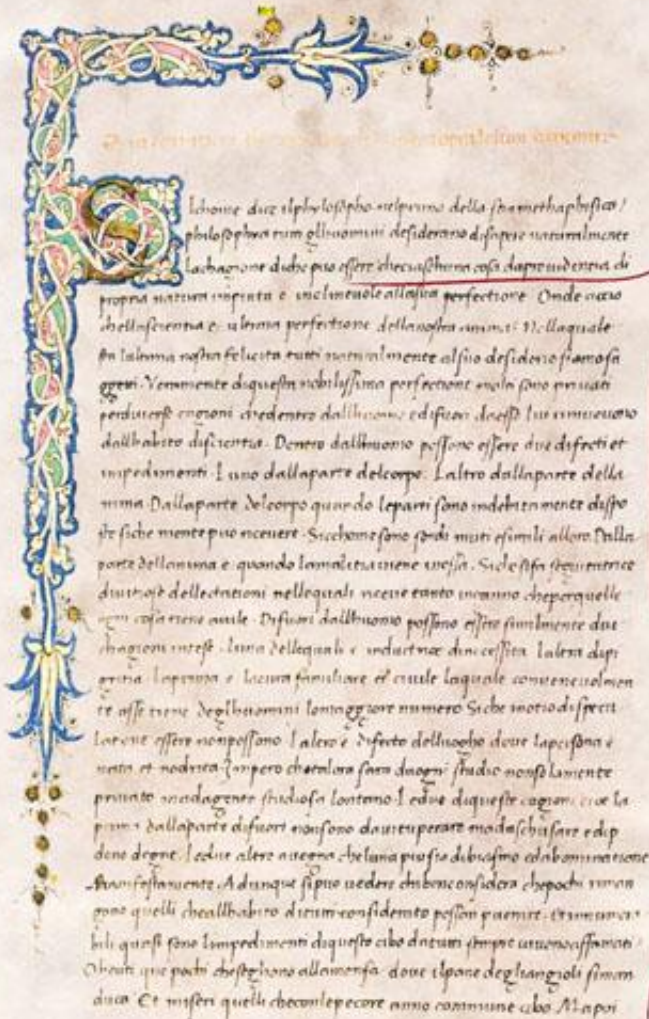 Ichome dice ilphylosopho nelprimo della sua methaphisica
philosophia tutti gliuomini desiderano disapere naturalmente
Lachagione diche puo essere checiaschuna cosa daprovidentia di
propria natura impinta e inclinevole allasua perfectione Onde
chellascientia e ultima perfectione dellanostra anima: Nellaquale
sta lultima nostra felicita tutti naturalmente alsuo desiderio siamosu
ggetti. Veramente diquesta nobilissima perfectione molti sono privati
perdiverse cagioni chedentro dalluomo edifuori daesso lui rimuovono
dallhabito discientia. Dentro dalluomo possono essere due difecti et
impedimenti. Luno dallaparte delcorpo. Laltro dallaparte della
nima Dallaparte delcorpo quando leparti sono indebitamente dispo
ste siche mente puo ricevere. Sicchome sono sordi muti esimili alloro. Dalla
parte dellanima e quando lamalitia vince inessa. Siche sifa seguitatrice
diviziose dellectationi nellequali riceve tanto inganno cheperquelle
ogni cosa tiene avile. Difuori dallhuomo possono essere similmente due
chagioni intese. Luna dellequali e inductrice dinecessita laltra dipi
gritia Laprima e lacura familiare et civile laquale convenevolmen
te asse tiene deglhuomini lomaggiore numero Siche inotio dispecu
latione essere nonpossono Laltro e difecto delluogho dove lapersona e
nata et nodrita. Impero chetalora sara daogni studio nonsolamente
privato madagente studiosa lontano. Ledue diqueste cagioni cioe la
prima dallaparte difuori nonsono davituperare madaschusare edip
dono degne. Ledue altre avegna cheluna piu sia dibiasmo edabominatione
Manifestamente. Adunque sipuo vedere chibenconsidera chepochi riman
gono quelli cheallhabito datutti considerato possan pervenire. Et innumera
bili quasi sono limpedimenti diquesto cibo datutti sempre vivonoaffamati
O beati que pochi cheseghono allamensa dove ilpane degliangioli siman
duca Et miseri quelli checonlepecore anno commune cibo. Mapoi